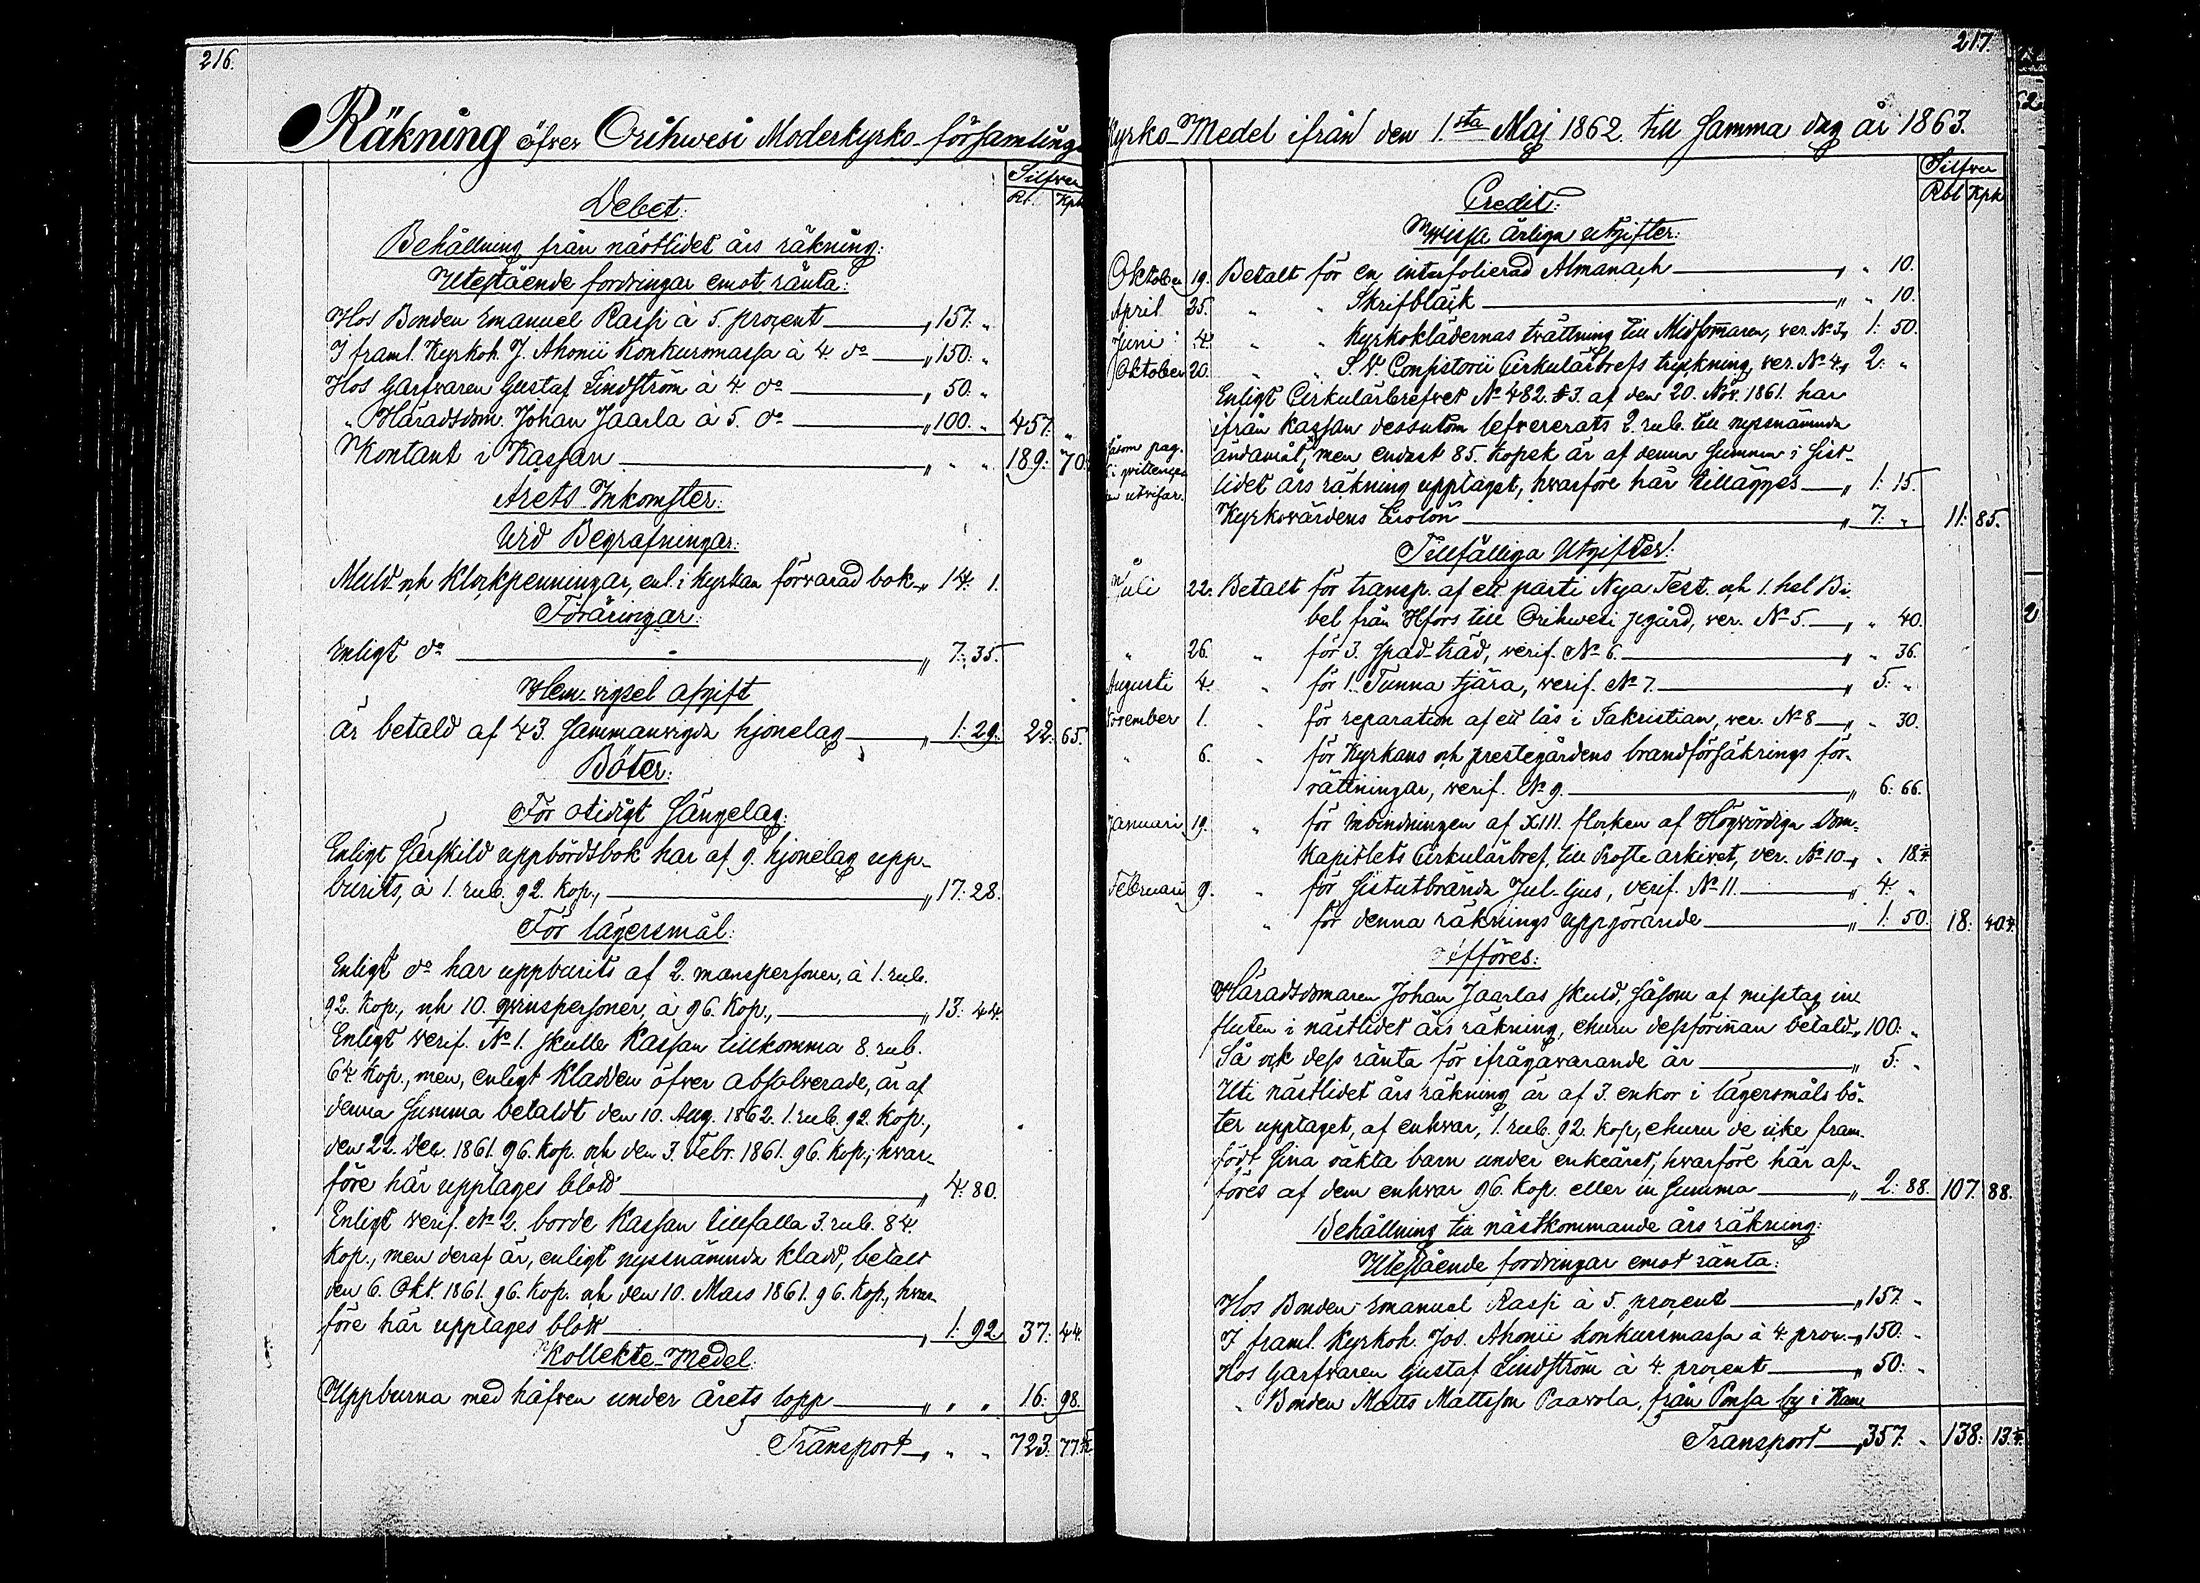 216.
Räkning öfver Orihwesi Moderkyrko-församlings
Silfver
Rbl Kpk
Debet:
Behållning från nästlidet års räkning:
Utestående fordringar emot ränta:
Hos Bonden Emanuel Rassi à 5. procent — „ 157. „
I framl. Kyrkoh. J. Ahonii Konkursmassa à 4 do — „ 150. „
Hos Garfvaren Gustaf Lindström à 4 do — „ 50. „
„ Häradsdom. Johan Jaarla à 5. do — „ 100. „ 457. „
Kontant i Kassan — „ „ „ 189: 70
Årets Inkomster:
Vid Begrafningar:
Muld- och Klockpenningar, enl. i Kyrkan förvarad bok — „ 14: 1.
Föräringar:
Enligt do — „ 7: 35.
Hem-vigsel afgift
är betald af 43. sammanvigda hjonelag — „ 1: 29. 22: 65.
Böter:
För otidigt sängelag:
Enligt särskild uppbördsbok har af 9. hjonelag upp-
burits, à 1. rub. 92. kop., — „ 17: 28.
För lägersmål:
Enligt do har uppburits af 2. manspersoner, à 1. rub.
92. kop., och 10. qvinspersoner, à 96. kop., — „ 13: 44.
Enligt verif. No 1. skulle Kassan tillkomma 8. rub.
64. kop., men, enligt kladden öfver absolverade, är af
denna summa betaldt den 10. Aug. 1862. 1. rub. 92. kop.,
den 22. Dec. 1861. 96. kop. och den 3. Febr. 1861. 96. kop., hvar-
före här upptages blott — „ 4: 80.
Enligt verif. No 2. borde Kassan tillfalla 3. rub. 84.
kop., men deraf är, enligt nyssnämnda kladd, betalt
den 6. Okt. 1861. 96. kop. och den 10. Mars 1861. 96. kop., hvar-
före här upptages blott — „ 1: 92. 37: 44.
Kollekte-Medel:
Uppburna med håfven under årets lopp — „ „ „ 16: 98.
Transport — „ „ „ 723: 77
217.
Kyrko-Medel ifrån den 1.sta Maj 1862 till samma dag år 1863.
Silfver
Rbl Kpk
Credit:
Wissa årliga utgifter:
Oktober 19. Betalt för en interfolierad Almanach — „ „ 10.
April 25. „ „ Skrifbläck — „ „ 10.
Juni 4. „ „ Kyrkoklädernas tvättning till Midsommaren, ver. No 3, „ 1: 50.
Oktober 20. „ „ S. V. Consistorii Cirkulärbrefs tryckning, ver. No 4, „ 2: „
Enligt Cirkulärbrefvet No 482. § 3. af den 20. Nov. 1861. har
ifrån kassan dessutom lefvererats 2. rub. till nyssnämnda
ändamål, men endast 85. kopek är af denna summa i sist-
lidet års räkning upptaget, hvarföre här tillägges — „ 1: 15.
såsom pag.
utvisar.
Kyrkovärdens Årslön — „ 7: „ 11: 85.
Tillfälliga Utgifter:
Juli 22. Betalt för transp. af ett parti Nya Test. och 1. hel Bi-
bel från Hfors till Orihwesi pgård, ver. No 5. — „ „ 40.
„ 26. „ för 3. spad-träd, verif. No 6. — „ „ 36.
Augusti 4. „ för 1. Tunna tjära, verif. No 7. — „ 5: „
November 1. „ för reparation af ett lås i Sakristian, ver. No 8 — „ „ 30.
„ 6. „ för Kyrkans och prestegårdens brandförsäkrings för-
rättningar, verif. No 9. — „ 6: 66.
Januari 19. „ för inbindningen af XIII. flocken af Högvördiga Dom-
kapitlets Cirkulärbref, till Kyrko arkivet, ver. No 10 — „ „ 18
Februari 9. „ för sistutbrända Jul-ljus, verif. No 11. — „ 4: „
„ för denna räknings uppgörande — „ 1: 50. 18: 40
Afföres:
Häradsdomaren Johan Jaarlas skuld, såsom af misstag in-
fluten i nästlidet års räkning, ehuru dessförinnan betald — „ 100: „
Så ock dess ränta för ifrågavarande år — „ 5: „
Uti nästlidet års räkning är af 3. enkor i lägersmåls bö-
ter upptaget, af enhvar, 1. rub. 92. kop, ehuru de icke fram-
födt sina oäkta barn under enkeåret, hvarföre här af-
föres af dem enhvar 96. kop. eller in summa — „ 2: 88. 107: 88.
Behållning till nästkommande års räkning:
Utestående fordringar emot ränta:
Hos Bonden Emanuel Rassi à 5. procent — „ 157. „
I framl. Kyrkoh. Jos. Ahonii konkursmassa à 4. proc. — „ 150. „
Hos Garfvaren Gustaf Lindström à 4. procent — „ 50: „
„ Bonden Matts Mattsson Paavola, från Ponsa by i Kan
Transport — „ 357: „ 138: 13